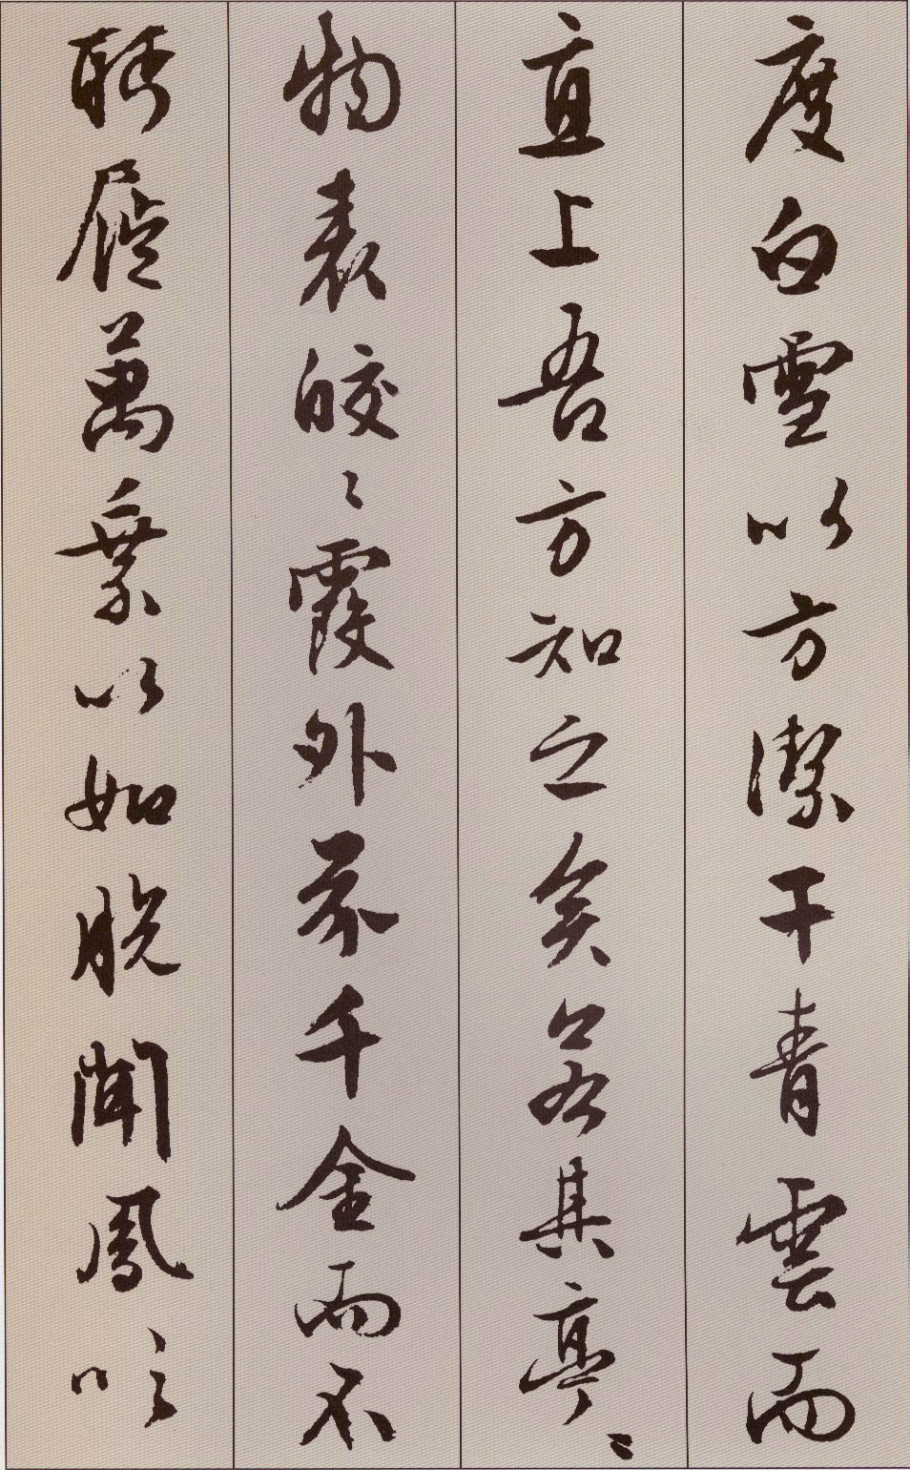 度白雪以方潔干青雲而
直上吾方知之矣若其亭〻
物表皎〻霞外芥千金而不
盼屣萬乘以如脫聞鳳吹